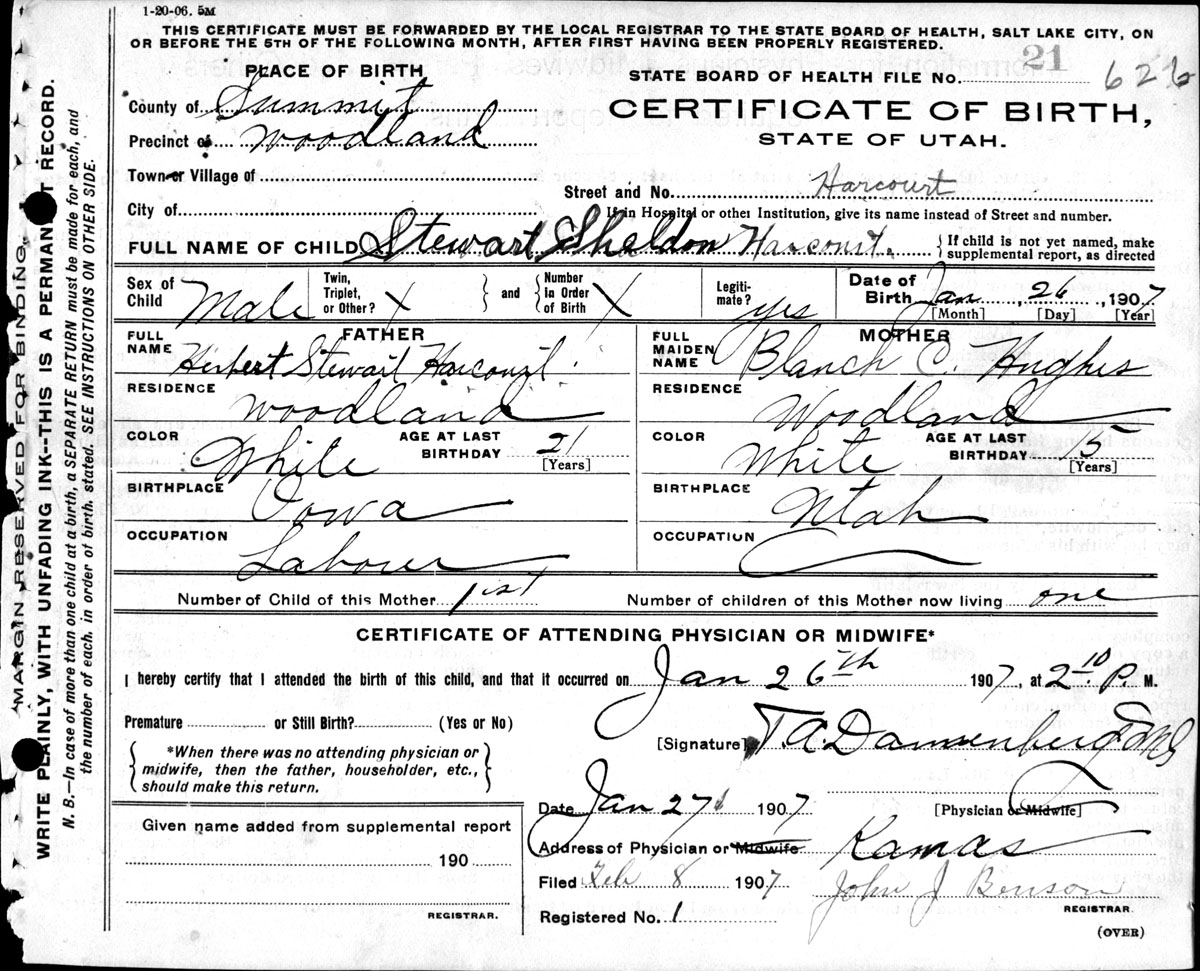 1-20-06. 5M
THIS CERTIFICATE MUST BE FORWARDED BY THE LOCAL REGISTRAR TO THE STATE BOARD OF HEALTH, SALT LAKE CITY, ON
OR BEFORE THE 5TH OF THE FOLLOWING MONTH, AFTER FIRST HAVING BEEN PROPERLY REGISTERED.
PLACE OF BIRTH
STATE BOARD OF HEALTH FILE No. 21 626
County of Summit
CERTIFICATE OF BIRTH,
Precinct of Woodland
STATE OF UTAH.
Town or Village of
Street and No. Harcourt
City of
If in Hospital or other Institution, give its name instead of Street and number.
FULL NAME OF CHILD Stewart Sheldon Harcourt. { If child is not yet named, make supplemental report, as directed
Sex of Child Male Twin, Triplet, or Other? X } and { Number In Order of Birth X Legiti- mate? yes Date of Birth Jan, 26, 1907
[Month] [Day] [Year]
FATHER
MOTHER
FULL NAME Herbert Stewart Harcourt
FULL MAIDEN NAME Blanch C. Hughes
RESIDENCE Woodland
RESIDENCE Woodland
COLOR White AGE AT LAST BIRTHDAY 21 [Years]
COLOR White AGE AT LAST BIRTHDAY 15 [Years]
BIRTHPLACE Iowa
BIRTHPLACE Utah
OCCUPATION Laborer
OCCUPATION
Number of Child of this Mother 1st Number of children of this Mother now living one
CERTIFICATE OF ATTENDING PHYSICIAN OR MIDWIFE*
I hereby certify that I attended the birth of this child, and that it occurred on Jan 26th 1907, at 2.10 P. M.
Premature or Still Birth? (Yes or No)
[Signature] T A. Dannenberg MD
{ *When there was no attending physician or
midwife, then the father, householder, etc.,
should make this return. }
Date Jan 27 1907 [Physician or Midwife]
Given name added from supplemental report
Address of Physician or Midwife Kamas
190
Filed Feb 8 1907 John J Benson
REGISTRAR.
REGISTRAR.
Registered No. 1
(OVER)
MARGIN RESERVED FOR BINDING.
WRITE PLAINLY, WITH UNFADING INK--THIS IS A PERMANENT RECORD.
N. B.—In case of more than one child at a birth, a SEPARATE RETURN must be made for each, and
the number of each. in order of birth. stated. SEE INSTRUCTIONS ON OTHER SIDE.